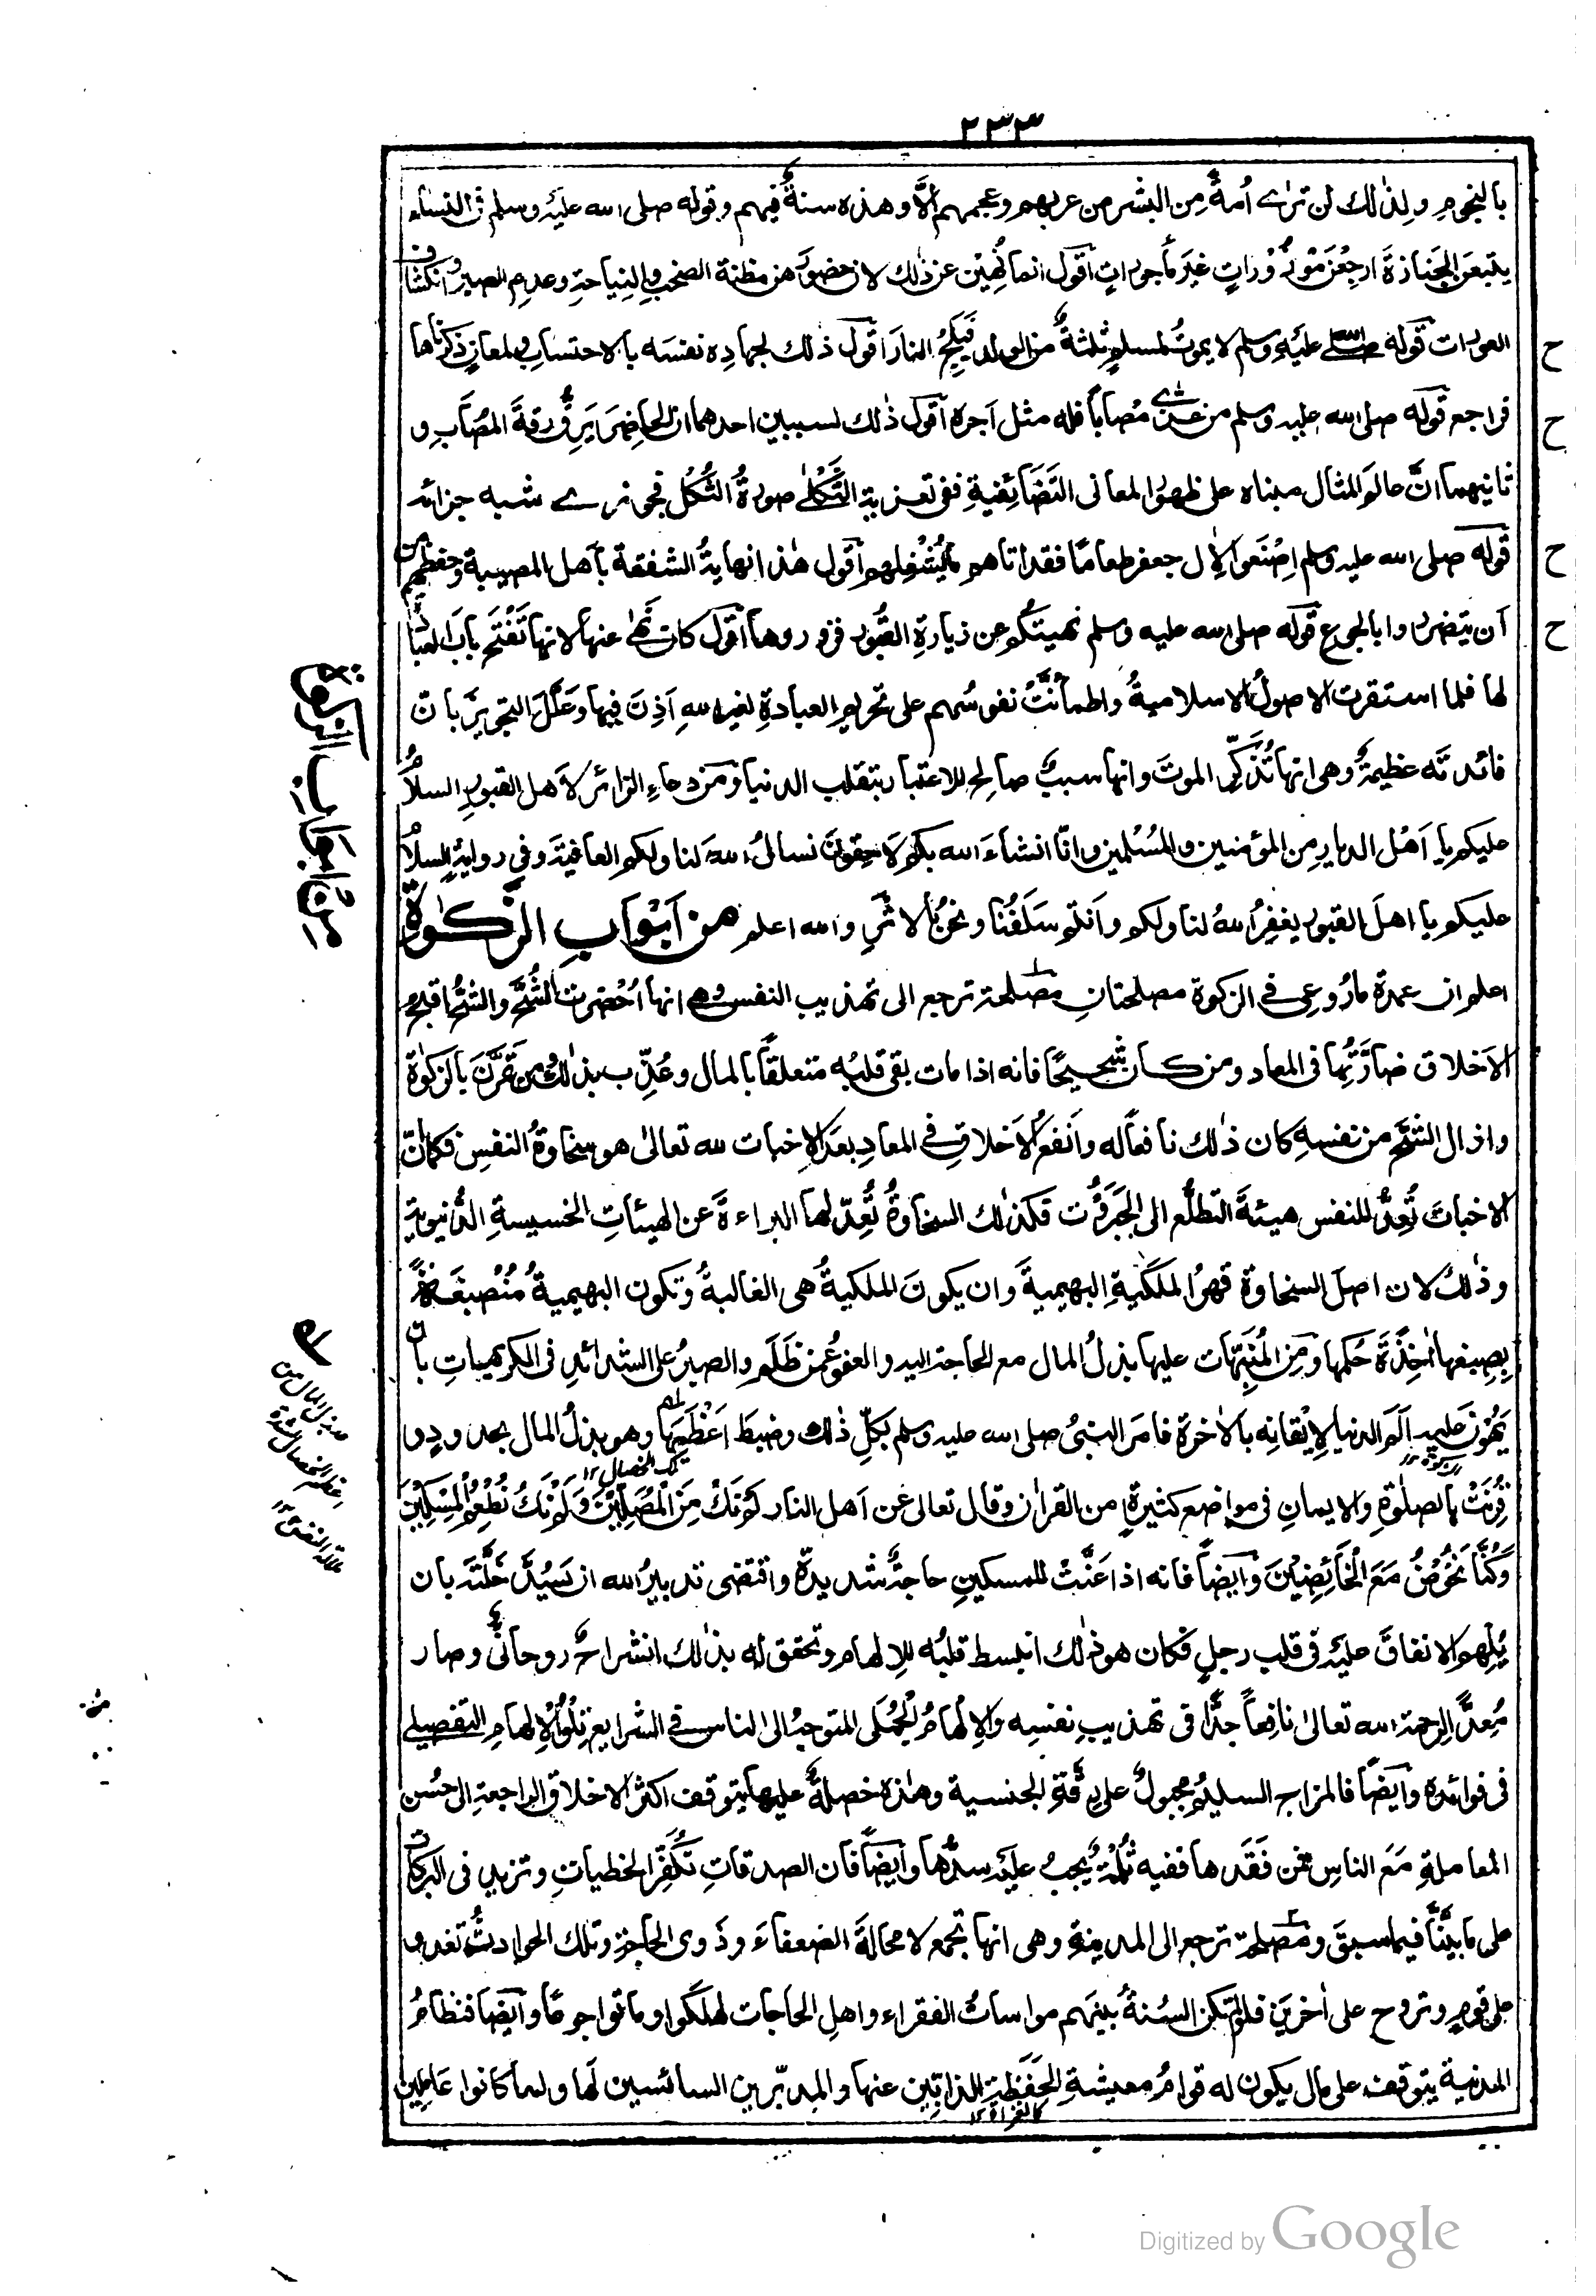 ٢٣٣
بالنجوم ولذٰلك لن ترٰى اُمةً من البشر من عربهم وعجمهم الّا وهذه سنةٌ فيهم وقوله صلى الله عليه وسلم فى النساء
يتبعن الجنازة ارجِعْنَ مَوْزُوراتٍ غيرَ مأجوراتٍ اقول انما نُهِيْنَ عن ذٰلك لان حضورَهن مظنة الصخب والنياحة وعدم الصبر وانكشاف
العورات قوله صلى الله عليه وسلم لا يموتُ لمسلم ثلثةٌ من الولد فَيَلِجُ النارَ اقول ذٰلك لجهادِه نفسَه بالاحتساب ولمعانٍ ذكرناها
فراجع قوله صلى الله عليه وسلم من عزّٰى مُصاباً فله مثل اَجره اقول ذٰلك لسببين احدهما ان الحاضِرَ يَرِقُّ رِقةَ المُصَابِ و
ثانيهما انَّ عالم المثال مبناه على ظهور المعانى التَضَائِفيةِ ففى تعزية الثَّكْلٰى صورةُ الثُّكْل فجوزى شبه جزائه
قوله صلى الله عليه وسلم اِصْنَعوا لِاٰل جعفر طعامًا فقد اتاهم ما يُشْغِلهم اقول هٰذا نهايةُ الشفقة بأهل المصيبة وحفظهم من
اَن يتضرروا بالجوع قوله صلى الله عليه وسلم نهيتُكم عن زيارةِ القُبُور فزوروها اقول كان نَهٰى عنها لانها تَفْتَح بابَ العبادة
لها فلما استقرت الاصولُ الاسلاميةُ واطمأنَّتْ نفوسُهم على تحريم العبادةِ لغير الله اَذِنَ فيها وعَلَّلَ التجويزَ بان
فائدته عظيمةٌ وهى انها تُذَكِّر الموتَ وانها سببٌ صالح للاعتبار بتقلب الدنيا ومن دعاءِ الزائر لاَهل القبورِ السلامُ
عليكم يا اَهْل الديار من المؤمنين والمُسْلمين وانّا انشاءَ الله بكم لاَحِقون نسألُ اللهَ لنا ولكم العافيةَ وفى روايةٍ السلامُ
عليكم يا اهلَ القبور يغفِرُ اللهُ لنا ولكم واَنتم سَلَفُنا ونحن بالاَثَرِ والله اعلم من اَبْوَابِ الزَّكوٰة
اعلم ان عمدة ما رُوعى فى الزكوة مصلحتانِ مصلحة ترجع الى تهذيب النفس وهى انها اُحْضِرت الشُحَّ والشُحُّ اقبحُ
الاَخلاق ضارٌّ بها فى المعاد ومن كان شحيحًا فانه اذا مات بقى قلبُه متعلقاً بالمال وعُذِّب بذٰلك ومن تَمَرَّنَ بالزكوٰة
وازال الشحَّ من نفسهِ كان ذٰلك نافعاً له واَنفعُ الاَخلاقِ فى المعادِ بعدَ الاِخبات لله تعالىٰ هو سخاوةُ النفسِ فكما انّ
الاخباتَ تُعِدُّ للنفس هيئةَ التطلُّع الى الجَبَرُوت فكذٰلك السخاوةُ تُعِدّ لها البراءةَ عن الهيئاتِ الخسيسةِ الدُّنيوية
وذٰلك لان اصلَ السخاوة قهرُ الملكيةِ البهيميةَ وان يكونَ الملكيةُ هى الغالبةُ وتكون البهيميةُ مُنْصبغةً
بِصِبغها اٰخِذَةً حُكمَها ومن المُنَبِّهات عليها بذلُ المال مع الحاجة اليه والعفو عمن ظَلَم والصبرُ على الشدائدِ فى الكريهياتِ بان
يَهُونَ عليه اَلَم الدنيا لِاِيْقانِه بالاٰخرة فامَر النبىُ صلى الله عليه وسلم بكلِّ ذٰلك وضبط اَعْظَمِها وهو بذلُ المال بحدودٍ و
قُرِنَتْ بالصلٰوةِ والايمانِ فى مواضع كثيرةٍ من القراٰن وقال تعالى عن اَهل النار لَمْ نَكُ مِنَ الْمُصَلِّيْنَ وَلَمْ نَكُ نُطْعِمُ الْمِسْكِيْنَ
وَكُنَّا نَخُوْضُ مَعَ الْخَائِضِيْنَ وايضاً فانه اذا عَنَّتْ للمسكينِ حاجةٌ شديدةٌ واقتضى تدبيرُ الله ان يَسُدَّ خَلَّتَه بان
يُلهِم الانفاقَ عليه فى قلب رجلٍ فكان هو ذٰلك انبسط قلبُه للاِلهام وتحقق له بذٰلك انشراحٌ روحانىٌ وصار
مُعِدًّا لرحمة الله تعالىٰ نافعاً جدًّا فى تهذيبِ نفسِه والاِلْهامُ الجُمَلى المتوجهُ الى الناس فى الشرايع تِلْوُ الاِلهامِ التفصيلى
فى فوائده وايضاً فالمزاج السليمُ مجبولٌ على رِقّةِ الجنسية وهٰذه خصلةٌ عليها يتوقف اكثرُ الاخلاق الراجعةِ الى حُسْن
المعاملةِ مَعَ الناس فمن فَقَدها ففيه ثُلْمَةٌ يُجب عليه سدُّها وأيضاً فان الصدقاتِ تُكَفِّر الخطيات وتزيد فى البركات
على ما بيّنّا فيما سبق ومصلحة ترجع الى المدينةِ وهى انها تجمع لا محالةَ الضعفاءَ وذَوى الحاجة وتلك الحوادثُ تغدو
على قومٍ وتروح على اٰخرين فلو لم تكن السُنةُ بينهم مواساتُ الفقراءِ واهلِ الحاجات لهلكوا وماتوا جوعًا وأيضا فنظامُ
المدنية يتوقف على مالٍ يكون له قوامُ معيشةِ الحَفَظةِ الذابّين عنها والمدبّرين السائسين لَها ولما كانوا عاملِين
كالغزاة ١٢
الزكوة ١٢
تلك الخصال ١٢
ح
ح
ح
ح
مِن ابوَابِ الزكوٰة